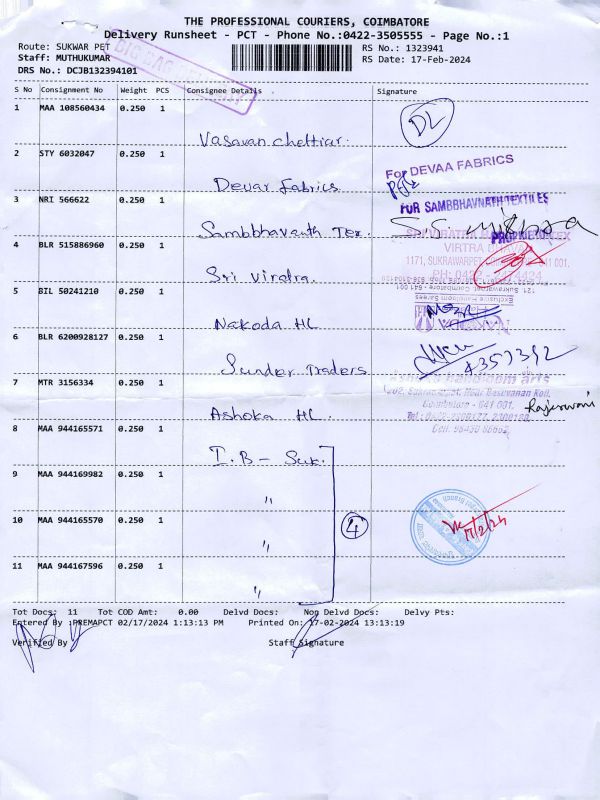 THE PROFESSIONAL COURIERS, COIMBATORE
Delivery Runsheet - PCT - Phone No.:0422-3505555 - Page No.:1
Route: SUKWAR PET RS No.: 1323941
Staff: MUTHUKUMAR RS Date: 17-Feb-2024
DRS No.: DCJB132394101
BIG BAG
S No Consignment No Weight PCS Consignee Details Signature
1 MAA 108560434 0.250 1 Vasavan chettiar. DL
2 STY 6032047 0.250 1 Devar Fabrics. For DEVAA FABRICS
3 NRI 566622 0.250 1 Sambbhavanth Tex. FOR SAMBBHAVNATH TEXTILES
4 BLR 515886960 0.250 1 Sri Viratra.
VIRTRA BHAVAN
1171, SUKRAWARPET,
5 BIL 50241210 0.250 1 Nakoda HL
Exclusive Handloom Sarees
6 BLR 6200928127 0.250 1 Sunder Traders
7 MTR 3156334 0.250 1 Ashoka HL. handloom arts
Coimbatore - 641 001. Rajeswari
8 MAA 944165571 0.250 1 I.B - Suk.
9 MAA 944169982 0.250 1 "
10 MAA 944165570 0.250 1 " 4 17/2/24
11 MAA 944167596 0.250 1 "
Tot Docs: 11 Tot COD Amt: 0.00 Delvd Docs: Non Delvd Docs: Delvy Pts:
Entered By :PREMAPCT 02/17/2024 1:13:13 PM Printed On: 17-02-2024 13:13:19
Verified By Staff Signature